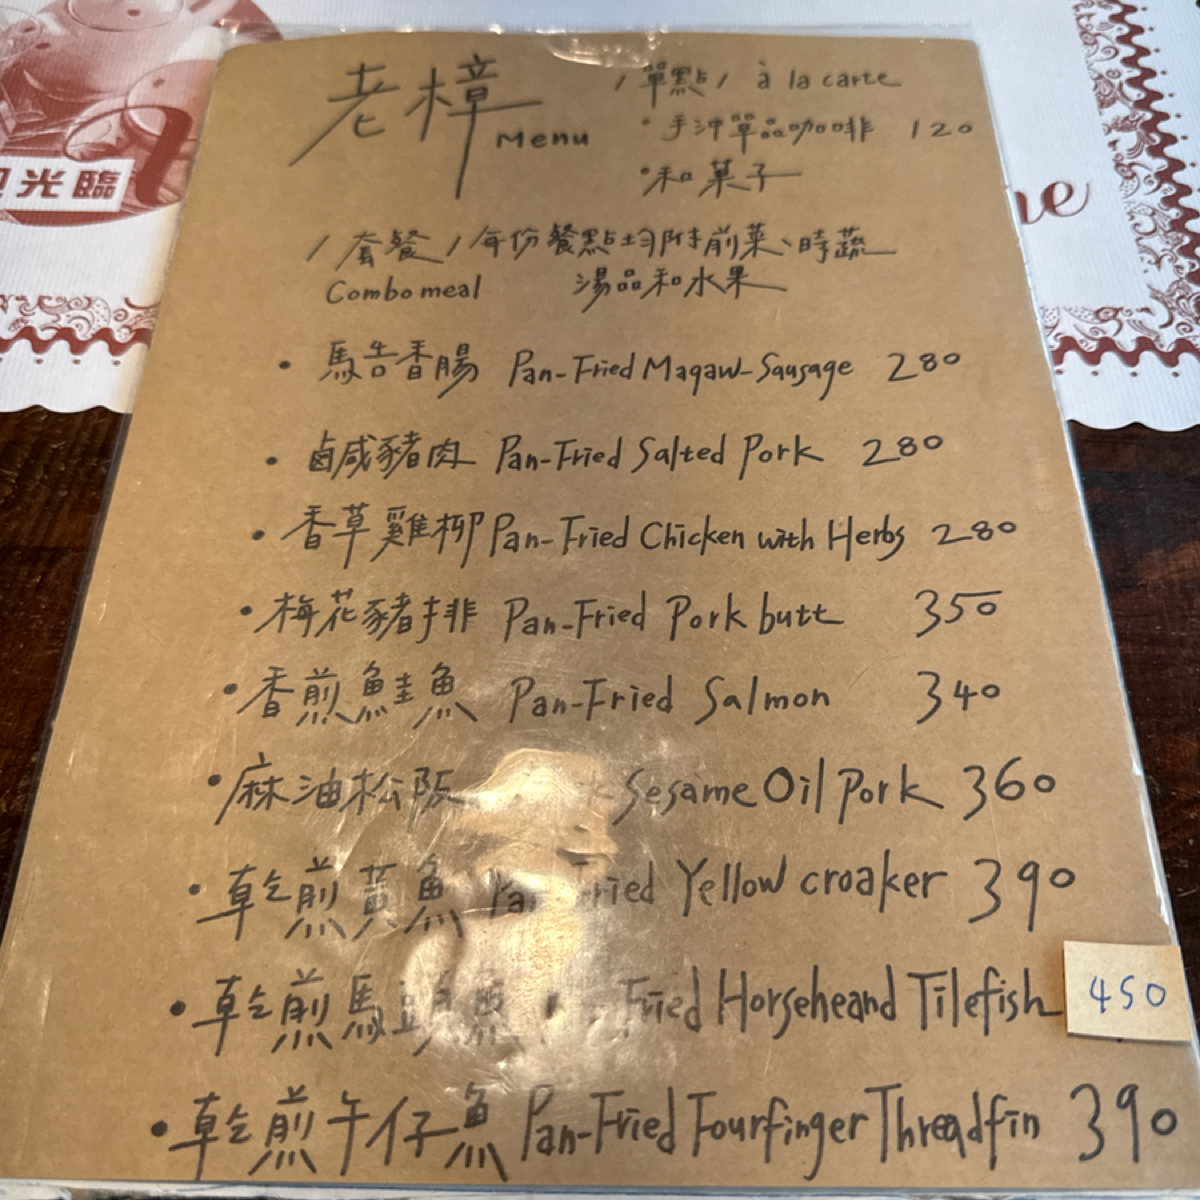 老樟 Menu
/單點/ à la carte
·手沖單品咖啡 120
·和菓子
/套餐/每份餐點均附前菜、時蔬
Combo meal 湯品和水果
·馬告香腸 Pan-Fried Magaw-Sausage 280
·鹵咸豬肉 Pan-Fried Salted Pork 280
·香草雞柳 Pan-Fried Chicken with Herbs 280
·梅花豬排 Pan-Fried Pork butt 350
·香煎鮭魚 Pan-Fried Salmon 340
·麻油松阪 Sesame Oil Pork 360
·乾煎黃魚 Pan-Fried Yellow croaker 390
·乾煎馬頭魚 Fried Horseheand Tilefish 450
·乾煎午仔魚 Pan-Fried Fourfinger Threadfin 390
光臨